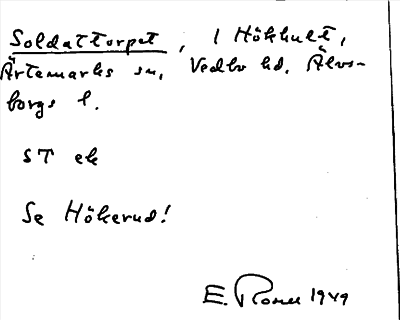 Soldattorpet, i Hökhult,
Ärtemarks sn, Vedbo hd, Älvs-
borgs l.
ST ek
Se Hökerud!
E. 1949